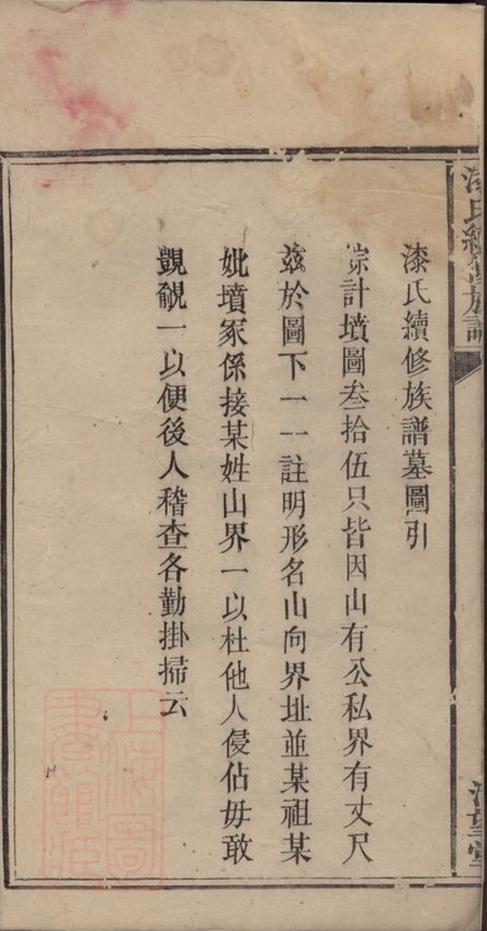 漆氏續修族譜
漆氏續修族譜墓圖引
綜計墳圖叁拾伍只皆因山有公私界有丈尺
兹於圖下一一註明形名山向界址並某祖某
妣墳冢係接某姓山界一以杜他人侵佔毋敢
覬覦一以便後人稽查各勤掛掃云
上海圖書館藏